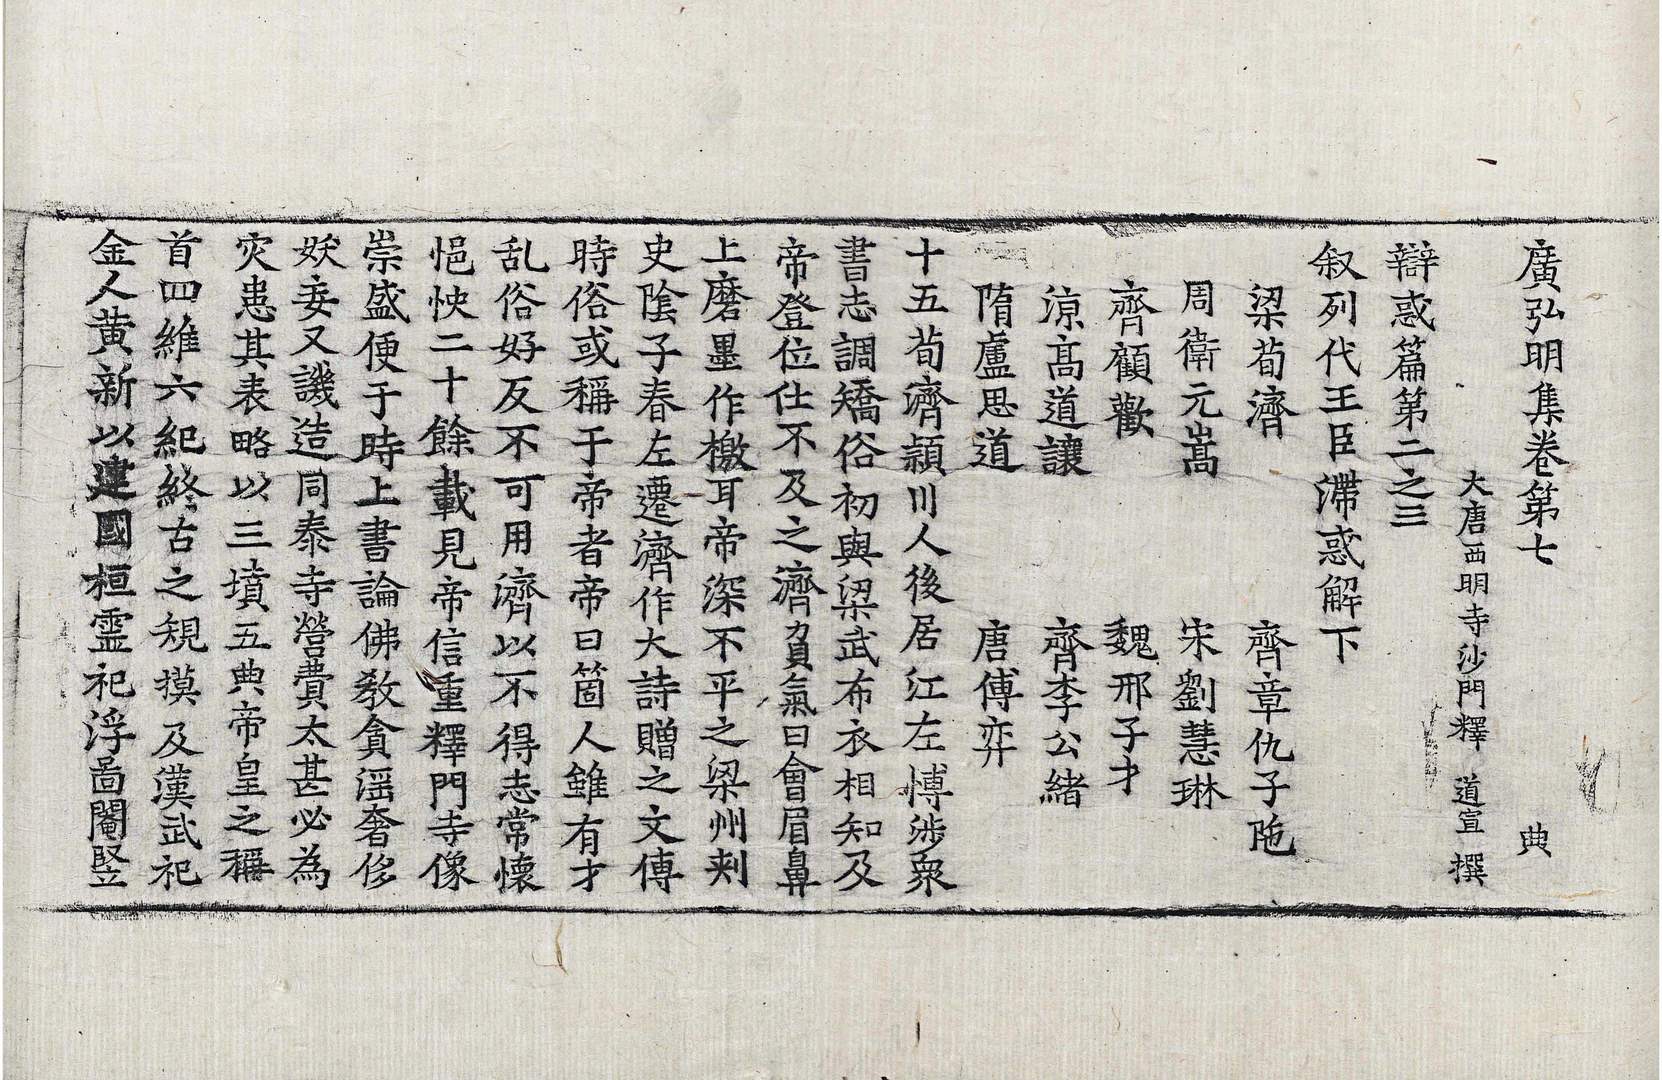 廣弘明集卷第七 典
大唐西明寺沙門釋 道宣 撰
辯惑篇第二之三
叙列代王臣滯惑解下
梁荀濟 齊章仇子陁
周衛元嵩 宋劉慧琳
齊顧歡 魏邢子才
涼高道讓 齊李公緒
隋盧思道 唐傅弈
十五荀濟潁川人後居江左博涉衆
書志調矯俗初與梁武布衣相知及
帝登位仕不及之濟負氣曰會眉鼻
上磨墨作檄耳帝深不平之梁州刾
史陰子春左遷濟作大詩贈之文傳
時俗或稱于帝者帝曰箇人雖有才
乱俗好反不可用濟以不得志常懷
悒怏二十餘載見帝信重釋門寺像
崇盛便于時上書論佛教貪滛奢侈
妖妄又譏造同泰寺營費太甚必為
灾患其表略以三墳五典帝皇之稱
首四維六紀終古之規摸及漢武祀
金人黄新以建國桓霊祀浮啚閹竪